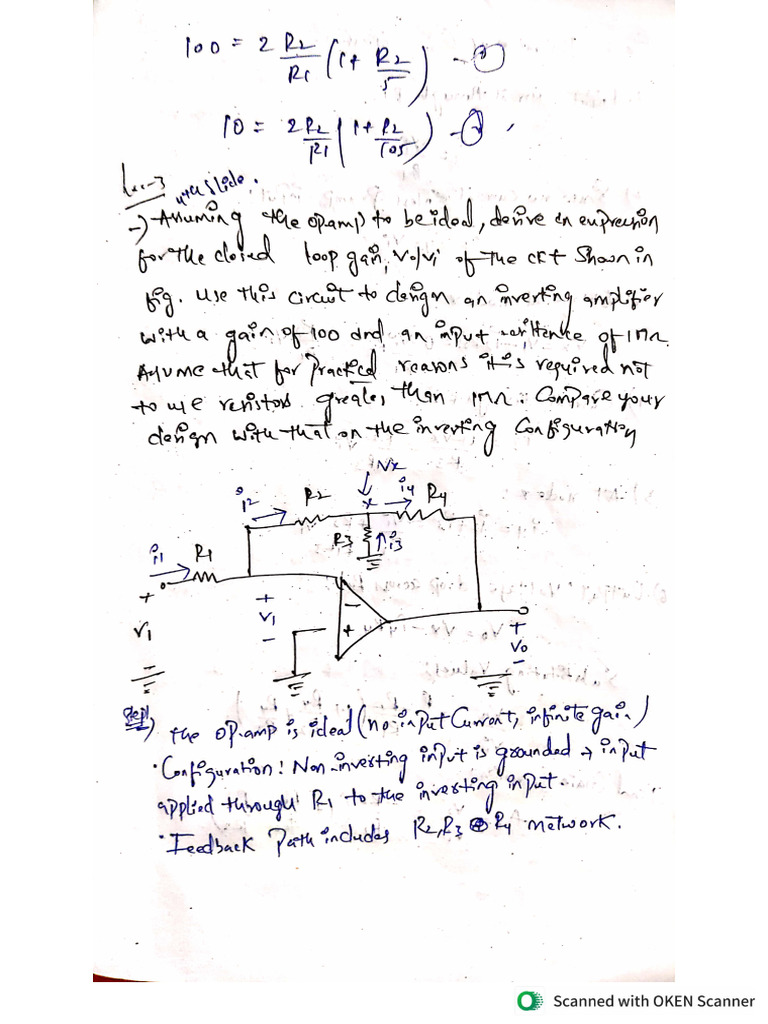 100 = 2 R2/R1 (1 + R2/5) - ①
10 = 2R2/R1 (1 + R2/105) - ②
Lec-3
4th Slide.
→) Assuming the op.amp to be ideal, derive an expression
for the closed loop gain, Vo/Vi of the CKT Shown in
fig. Use this circuit to design an inverting amplifier
with a gain of 100 and an input resistence of 1MΩ.
Assume that for Practical reasons it is required not
to use resistors greater than 1MΩ. Compare your
design with that on the inverting Configuration
Vx
i2 R2 x i4 R4
R3 i3
i1 R1
+ + −
V1 V1 +
− − +
Vo
−
Step1) the op.amp is ideal (no input Current, infinite gain.)
• Configuration: Non-inverting input is grounded → input
applied through R1 to the inverting input.
• Feedback Path includes R2, R3 R4 network.
Scanned with OKEN Scanner